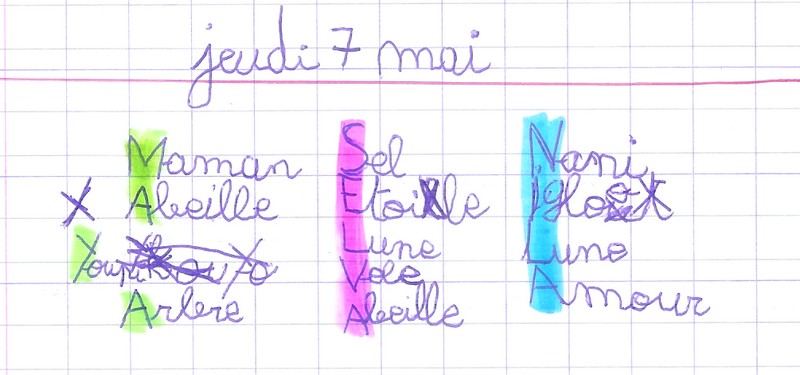 jeudi 7 mai
Maman
Abeille
Youpi
Arbre
Sel
Etoile
Lune
Vole
Abeille
Nani
Iglo
Lune
Amour